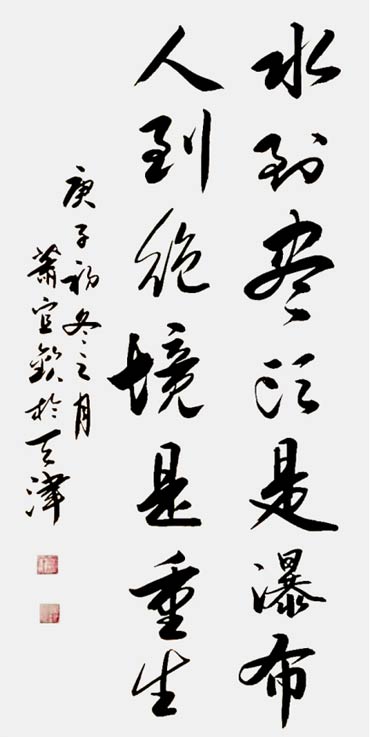 水到尽头是瀑布
人到绝境是重生
庚子初冬之月
萧宜钦于天津